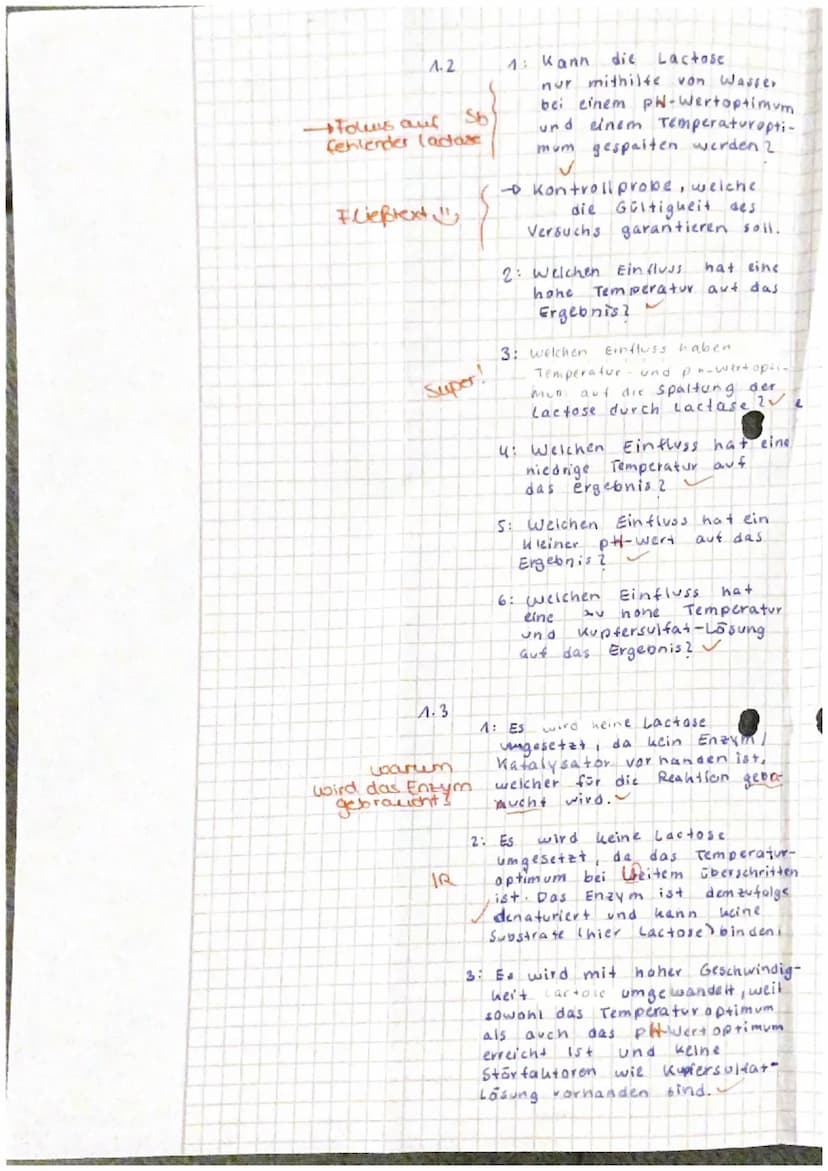 1.2 1: Kann die Lactose
nur mithilfe von Wasser
bei einem pH-Wertoptimum
→ Fokus auf Sb und einem Temperaturopti-
fehlender Lactase mum gespalten werden?
→ Kontrollprobe, welche
Fließtext die Gültigkeit des
Versuchs garantieren soll.
2: Welchen Einfluss hat eine
hohe Temperatur auf das
Ergebnis?
3: Welchen Einfluss haben
Temperatur- und pH-Wertopti-
Super! mum auf die Spaltung der
Lactose durch Lactase?
4: Welchen Einfluss hat eine
niedrige Temperatur auf
das Ergebnis?
5: Welchen Einfluss hat ein
kleiner pH-Wert auf das
Ergebnis?
6: Welchen Einfluss hat
eine zu hohe Temperatur
und Kupfersulfat-Lösung
auf das Ergebnis?
1.3
1: Es wird keine Lactose
umgesetzt, da kein Enzym/
warum Katalysator vorhanden ist,
wird das Enzym welcher für die Reaktion gebra-
gebraucht? aucht wird.
2: Es wird keine Lactose
umgesetzt, da das Temperatur-
1R optimum bei Weitem überschritten
ist. Das Enzym ist demzufolge
denaturiert und kann keine
Substrate (hier Lactose) binden.
3: Es wird mit hoher Geschwindig-
keit Lactose umgewandelt, weil
sowohl das Temperaturoptimum
als auch das pH-Wertoptimum
erreicht ist und keine
Störfaktoren wie Kupfersulfat-
Lösung vorhanden sind.